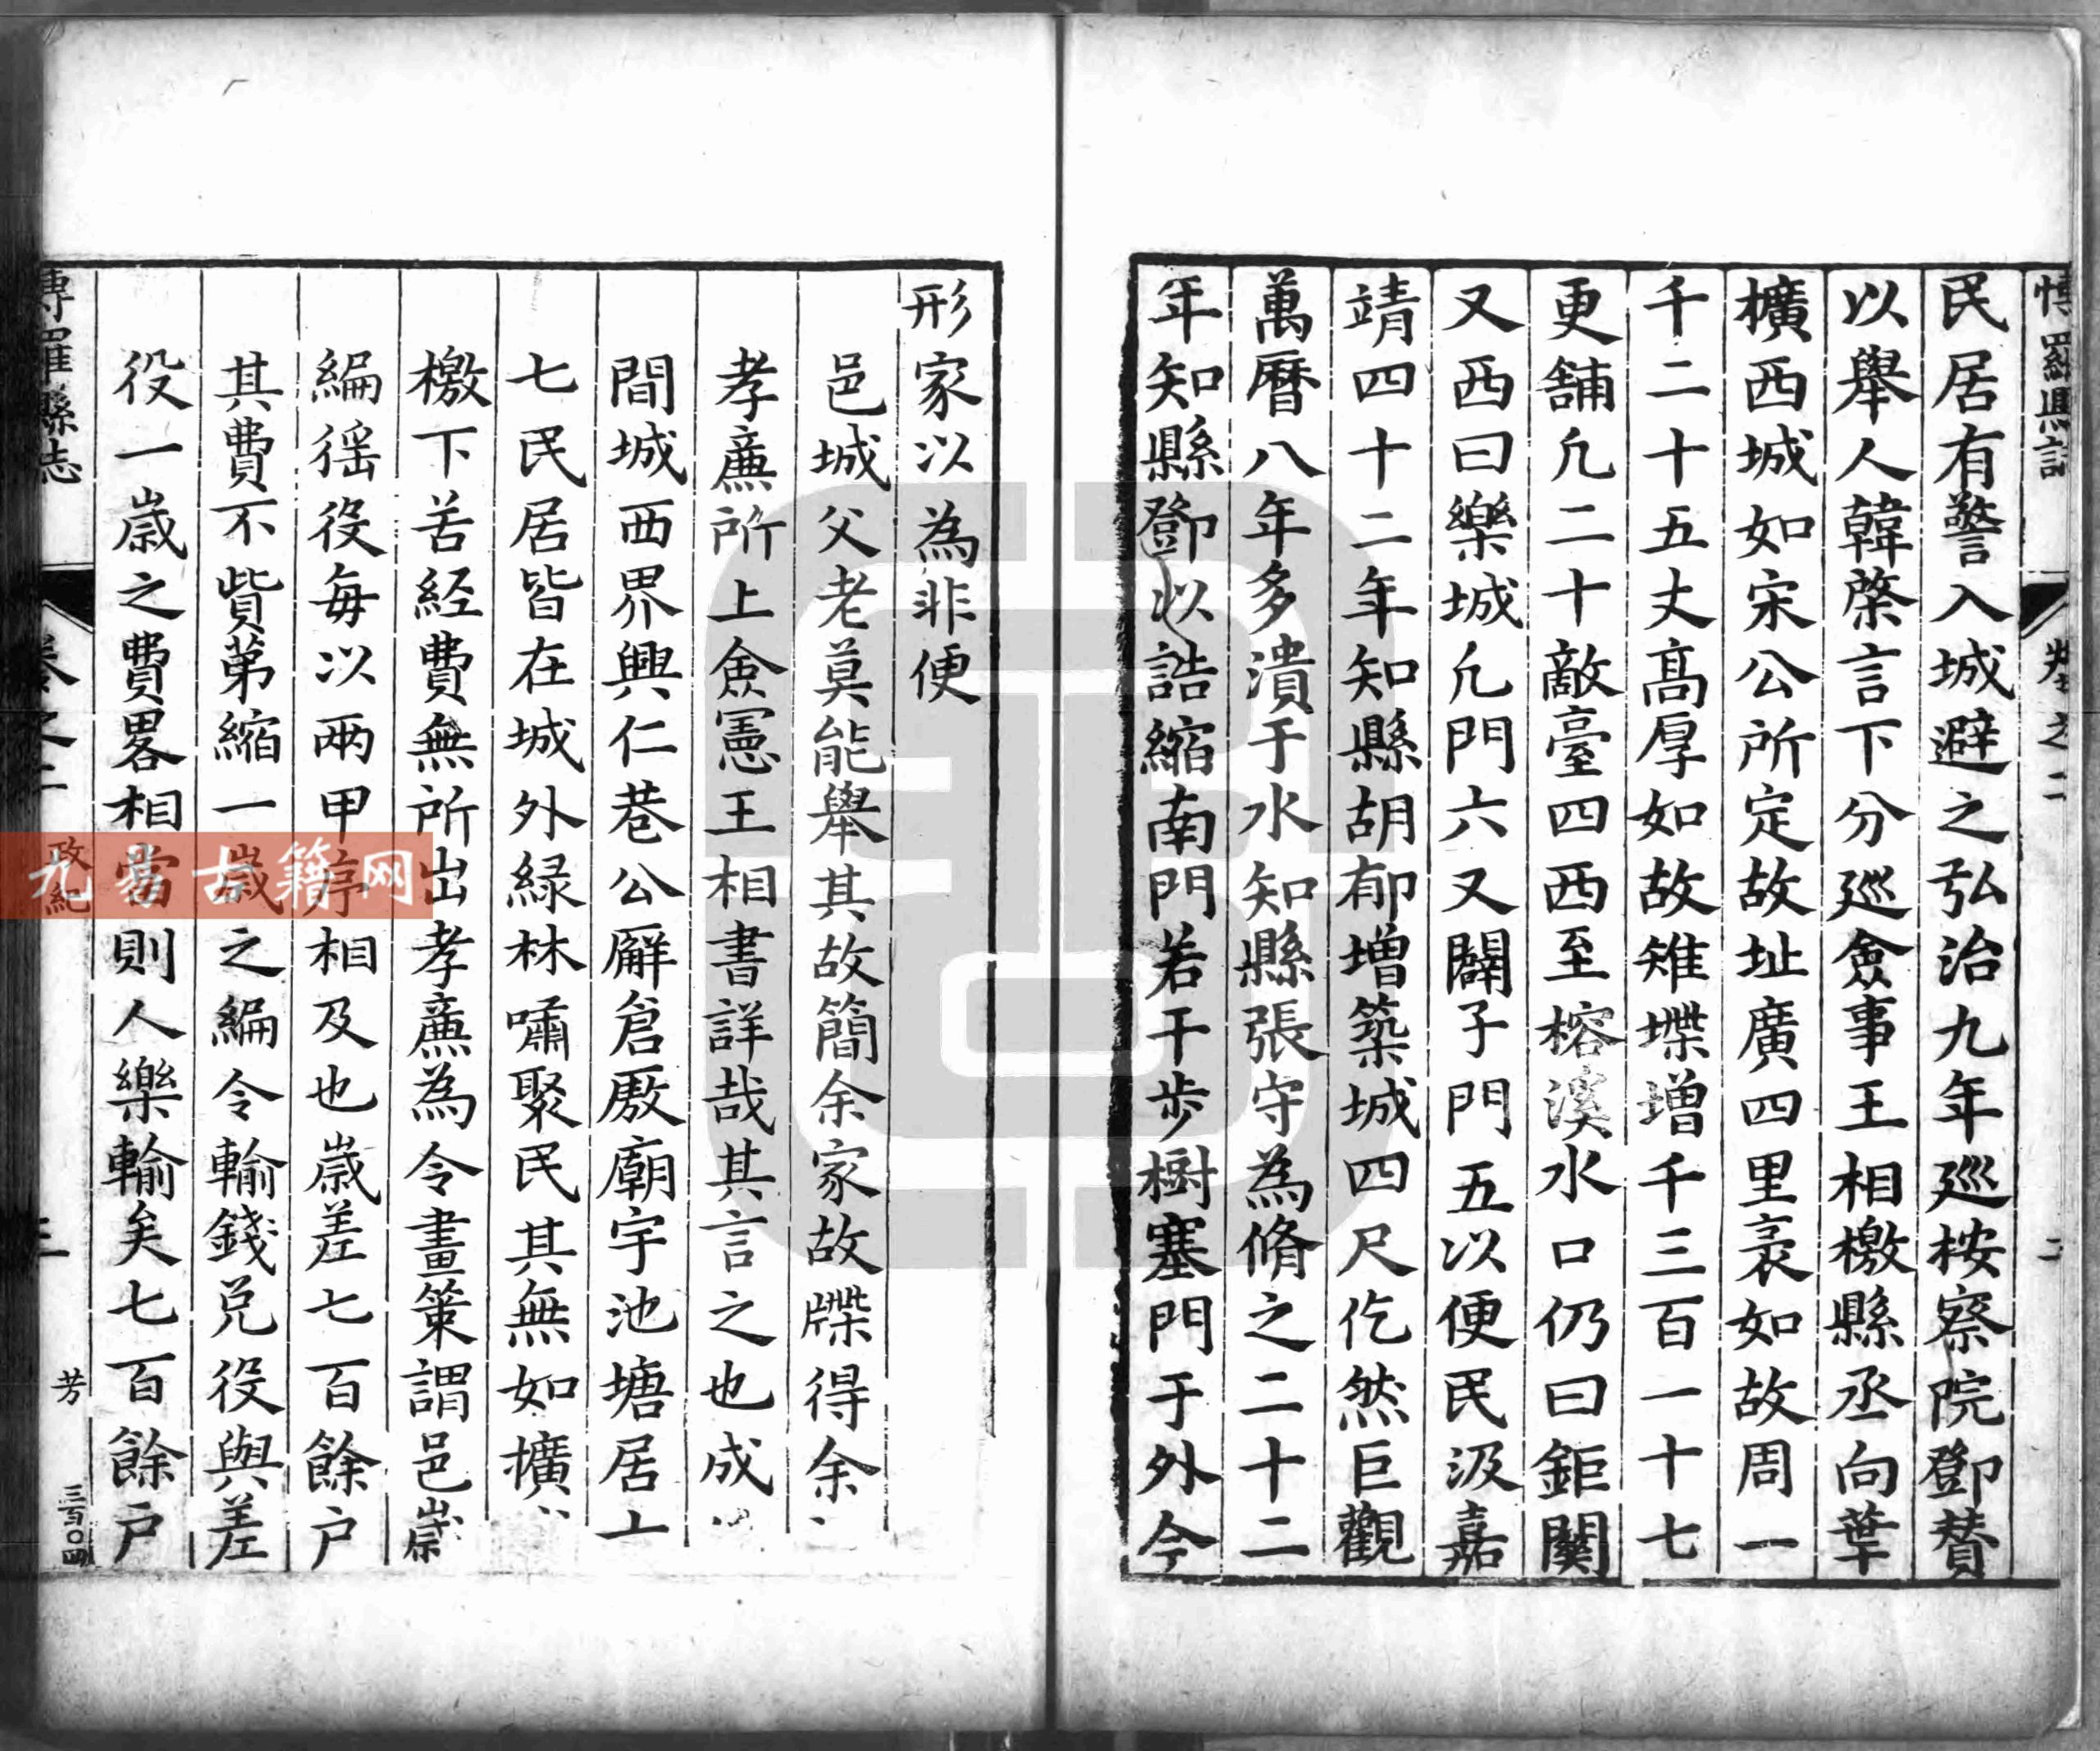 博羅縣志 卷之二 二
民居有警入城避之弘治九年廵桉察院鄧賛
以舉人韓棨言下分廵僉事王相檄縣丞向葉
擴西城如宋公所定故址廣四里袤如故周一
千二十五丈髙厚如故雉堞增千三百一十七
更舖凢二十敵臺四西至榕溪水口仍曰鉅關
又西曰樂城凢門六又闢子門五以便民汲嘉
靖四十二年知縣胡郁增築城四尺仡然巨觀
萬曆八年多潰于水知縣張守為脩之二十二
年知縣鄧以誥縮南門若干步樹塞門于外今
形家以為非便
邑城父老莫能舉其故簡余家故牒得余
孝亷所上僉憲王相書詳哉其言之也成
間城西界興仁巷公廨倉厫廟宇池塘居
七民居皆在城外緑林嘯聚民其無如擴
檄下苦經費無所出孝亷為令畫策謂邑歲
編徭役每以兩甲停相及也歲差七百餘户
其費不貲第縮一歲之編令輸錢免役與差
役一歲之費畧相當則人樂輸矣七百餘户
博羅縣志 卷之二 政紀 三 芳 三百〇四
九葛古籍网